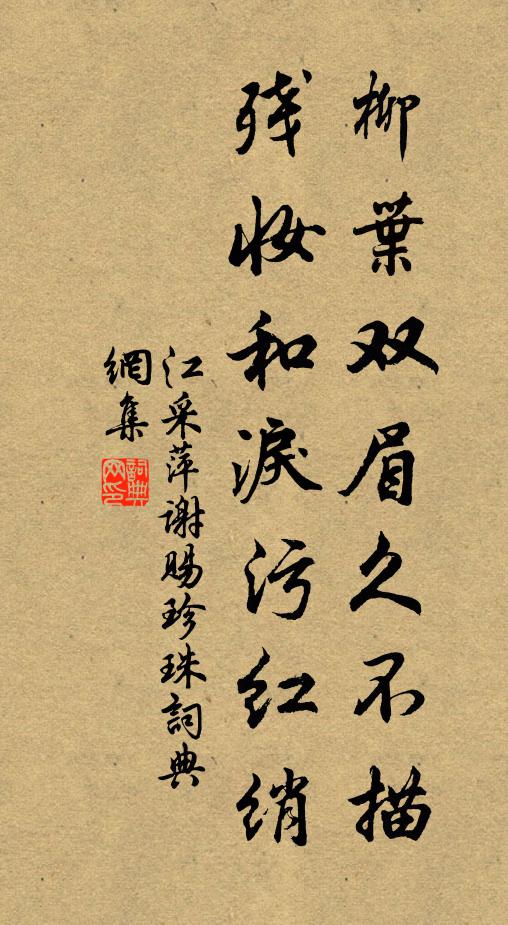 柳葉双眉久不描
残妆和淚污红绡
江采萍谢赐珍珠詞典
網集
詞典網印